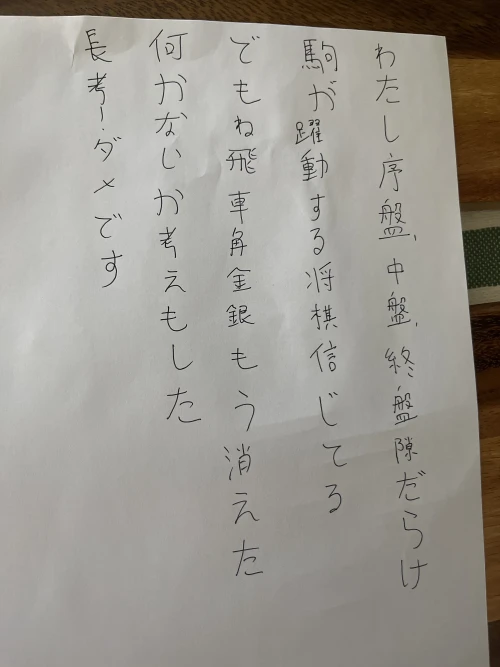 わたし序盤、中盤、終盤隙だらけ
駒が躍動する将棋信じてる
でもね飛車角金銀もう消えた
何かないか考えもした
長考ーダメです